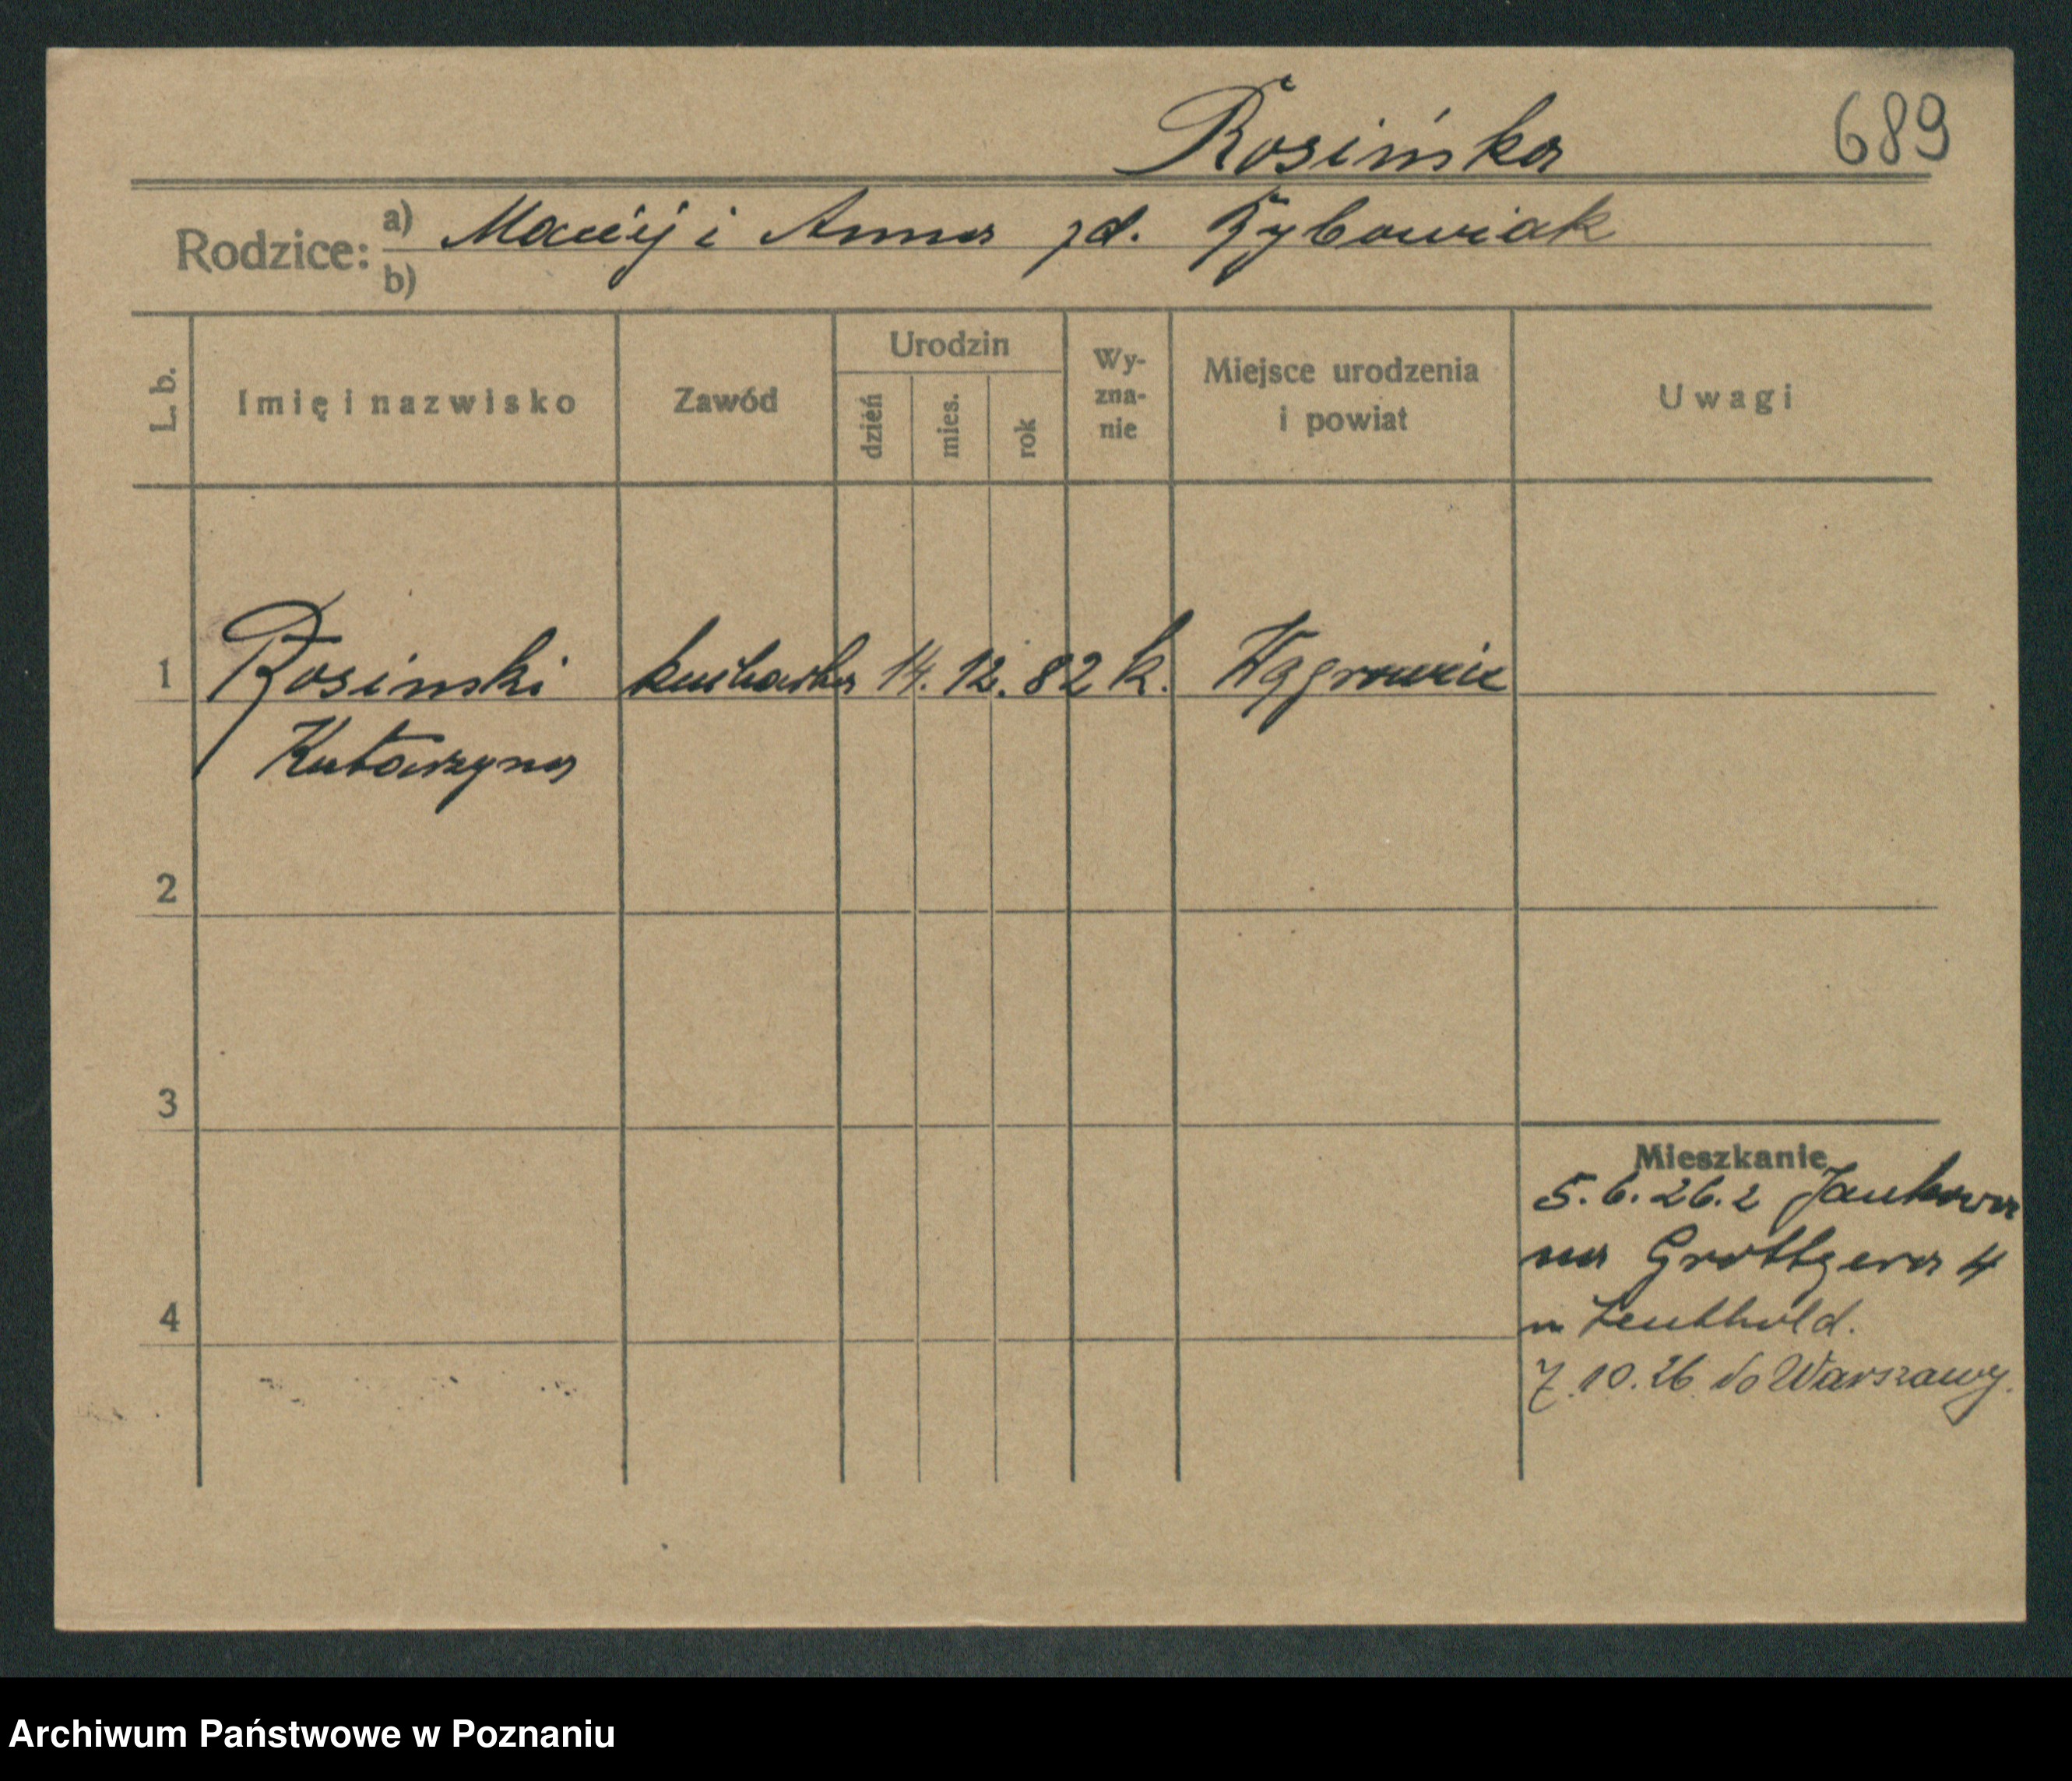 Rosińska 689
Rodzice: a) Maciej i Anna zd. Rybowiak
b)
L. b. Imię i nazwisko Zawód Urodzin dzień mies. rok Wy-zna-nie Miejsce urodzenia i powiat Uwagi
1 Rosinski kucharka 14. 12. 82 k. Wągrowiec
Katarzyna
2
3
Mieszkanie
5.6.26. z Jankowa
na Grottgera 4
4
7.10.26 do Warszawy.
Archiwum Państwowe w Poznaniu